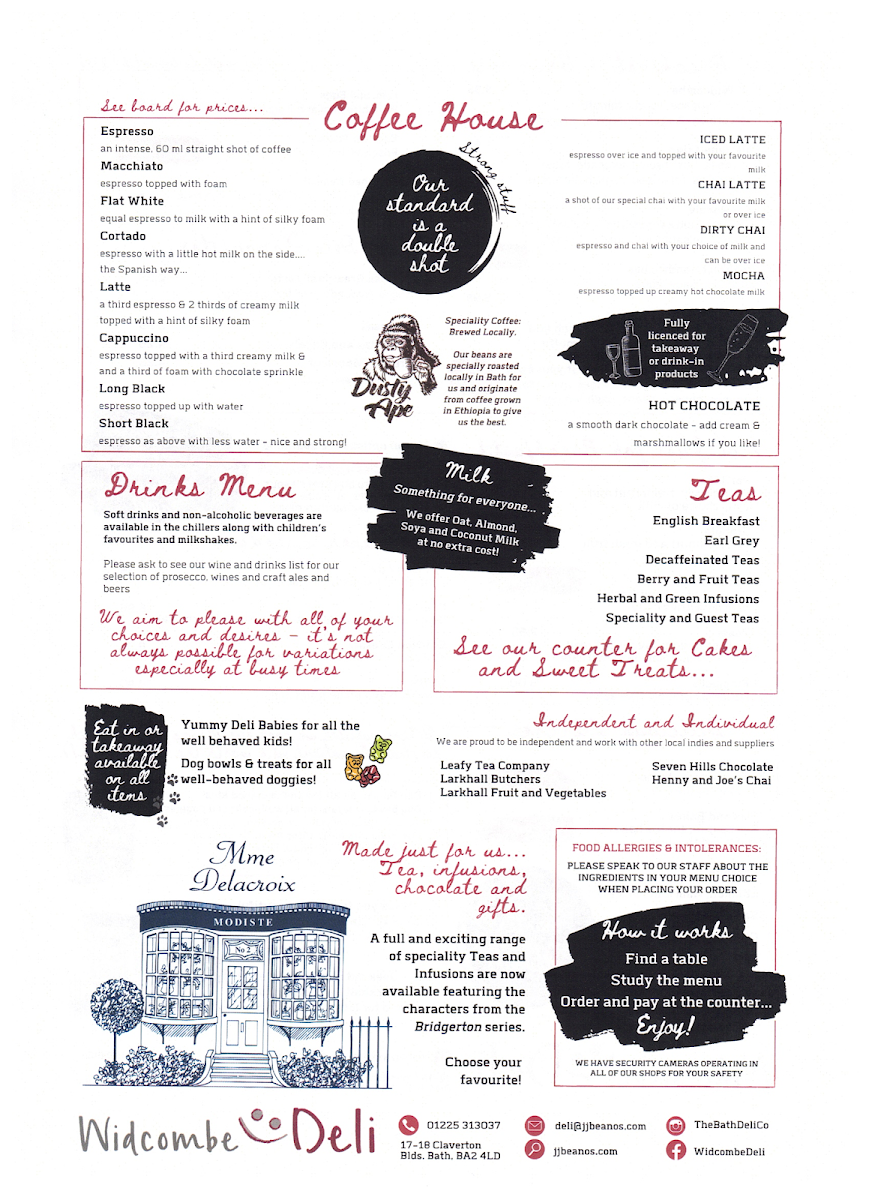 See board for prices...
Coffee House
Espresso
an intense, 60 ml straight shot of coffee
Macchiato
espresso topped with foam
Flat White
equal espresso to milk with a hint of silky foam
Cortado
espresso with a little hot milk on the side....
the Spanish way...
Latte
a third espresso & 2 thirds of creamy milk
topped with a hint of silky foam
Cappuccino
espresso topped with a third creamy milk &
and a third of foam with chocolate sprinkle
Long Black
espresso topped up with water
Short Black
espresso as above with less water - nice and strong!
Strong stuff
Our
standard
is a
double
shot
Dusty
Ape
Speciality Coffee:
Brewed Locally.
Our beans are
specially roasted
locally in Bath for
us and originate
from coffee grown
in Ethiopia to give
us the best.
ICED LATTE
espresso over ice and topped with your favourite
milk
CHAI LATTE
a shot of our special chai with your favourite milk
or over ice
DIRTY CHAI
espresso and chai with your choice of milk and
can be over ice
MOCHA
espresso topped up creamy hot chocolate milk
Fully
licenced for
takeaway
or drink-in
products
HOT CHOCOLATE
a smooth dark chocolate - add cream &
marshmallows if you like!
Drinks Menu
Soft drinks and non-alcoholic beverages are
available in the chillers along with children's
favourites and milkshakes.
Please ask to see our wine and drinks list for our
selection of prosecco, wines and craft ales and
beers
We aim to please with all of your
choices and desires - it's not
always possible for variations
especially at busy times
Milk
Something for everyone...
We offer Oat, Almond,
Soya and Coconut Milk
at no extra cost!
Teas
English Breakfast
Earl Grey
Decaffeinated Teas
Berry and Fruit Teas
Herbal and Green Infusions
Speciality and Guest Teas
See our counter for Cakes
and Sweet Treats...
Eat in or
takeaway
available
on all
items
Yummy Deli Babies for all the
well behaved kids!
Dog bowls & treats for all
well-behaved doggies!
Independent and Individual
We are proud to be independent and work with other local indies and suppliers
Leafy Tea Company
Larkhall Butchers
Larkhall Fruit and Vegetables
Seven Hills Chocolate
Henny and Joe's Chai
Mme
Delacroix
MODISTE
No 2
Made just for us...
Tea, infusions,
chocolate and
gifts.
A full and exciting range
of speciality Teas and
Infusions are now
available featuring the
characters from the
Bridgerton series.
Choose your
favourite!
FOOD ALLERGIES & INTOLERANCES:
PLEASE SPEAK TO OUR STAFF ABOUT THE
INGREDIENTS IN YOUR MENU CHOICE
WHEN PLACING YOUR ORDER
How it works
Find a table
Study the menu
Order and pay at the counter...
Enjoy!
WE HAVE SECURITY CAMERAS OPERATING IN
ALL OF OUR SHOPS FOR YOUR SAFETY
Widcombe Deli
01225 313037
17-18 Claverton
Blds, Bath, BA2 4LD
deli@jjbeanos.com
jjbeanos.com
TheBathDeliCo
WidcombeDeli